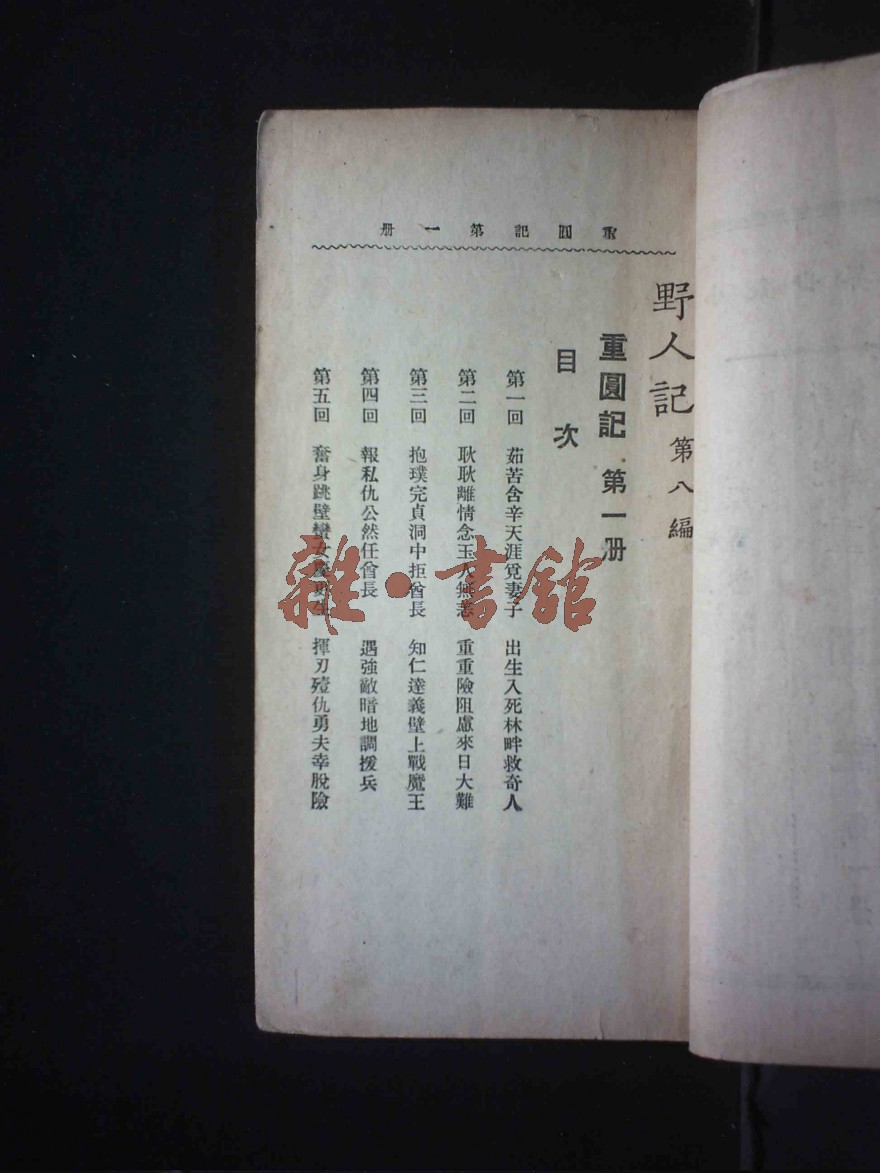 重圓記第一册
野人記 第八編
重圓記 第一册
目次
第一回 茹苦含辛天涯覓妻子 出生入死林畔救奇人
第二回 耿耿離情念玉人無恙 重重險阻慮來日大難
第三回 抱璞完貞洞中拒酋長 知仁達義壁上戰魔王
第四回 報私仇公然任酋長 遇強敵暗地調援兵
第五回 奮身跳壁蠻女慶更生 揮刃殪仇勇夫幸脫險
雜·書館